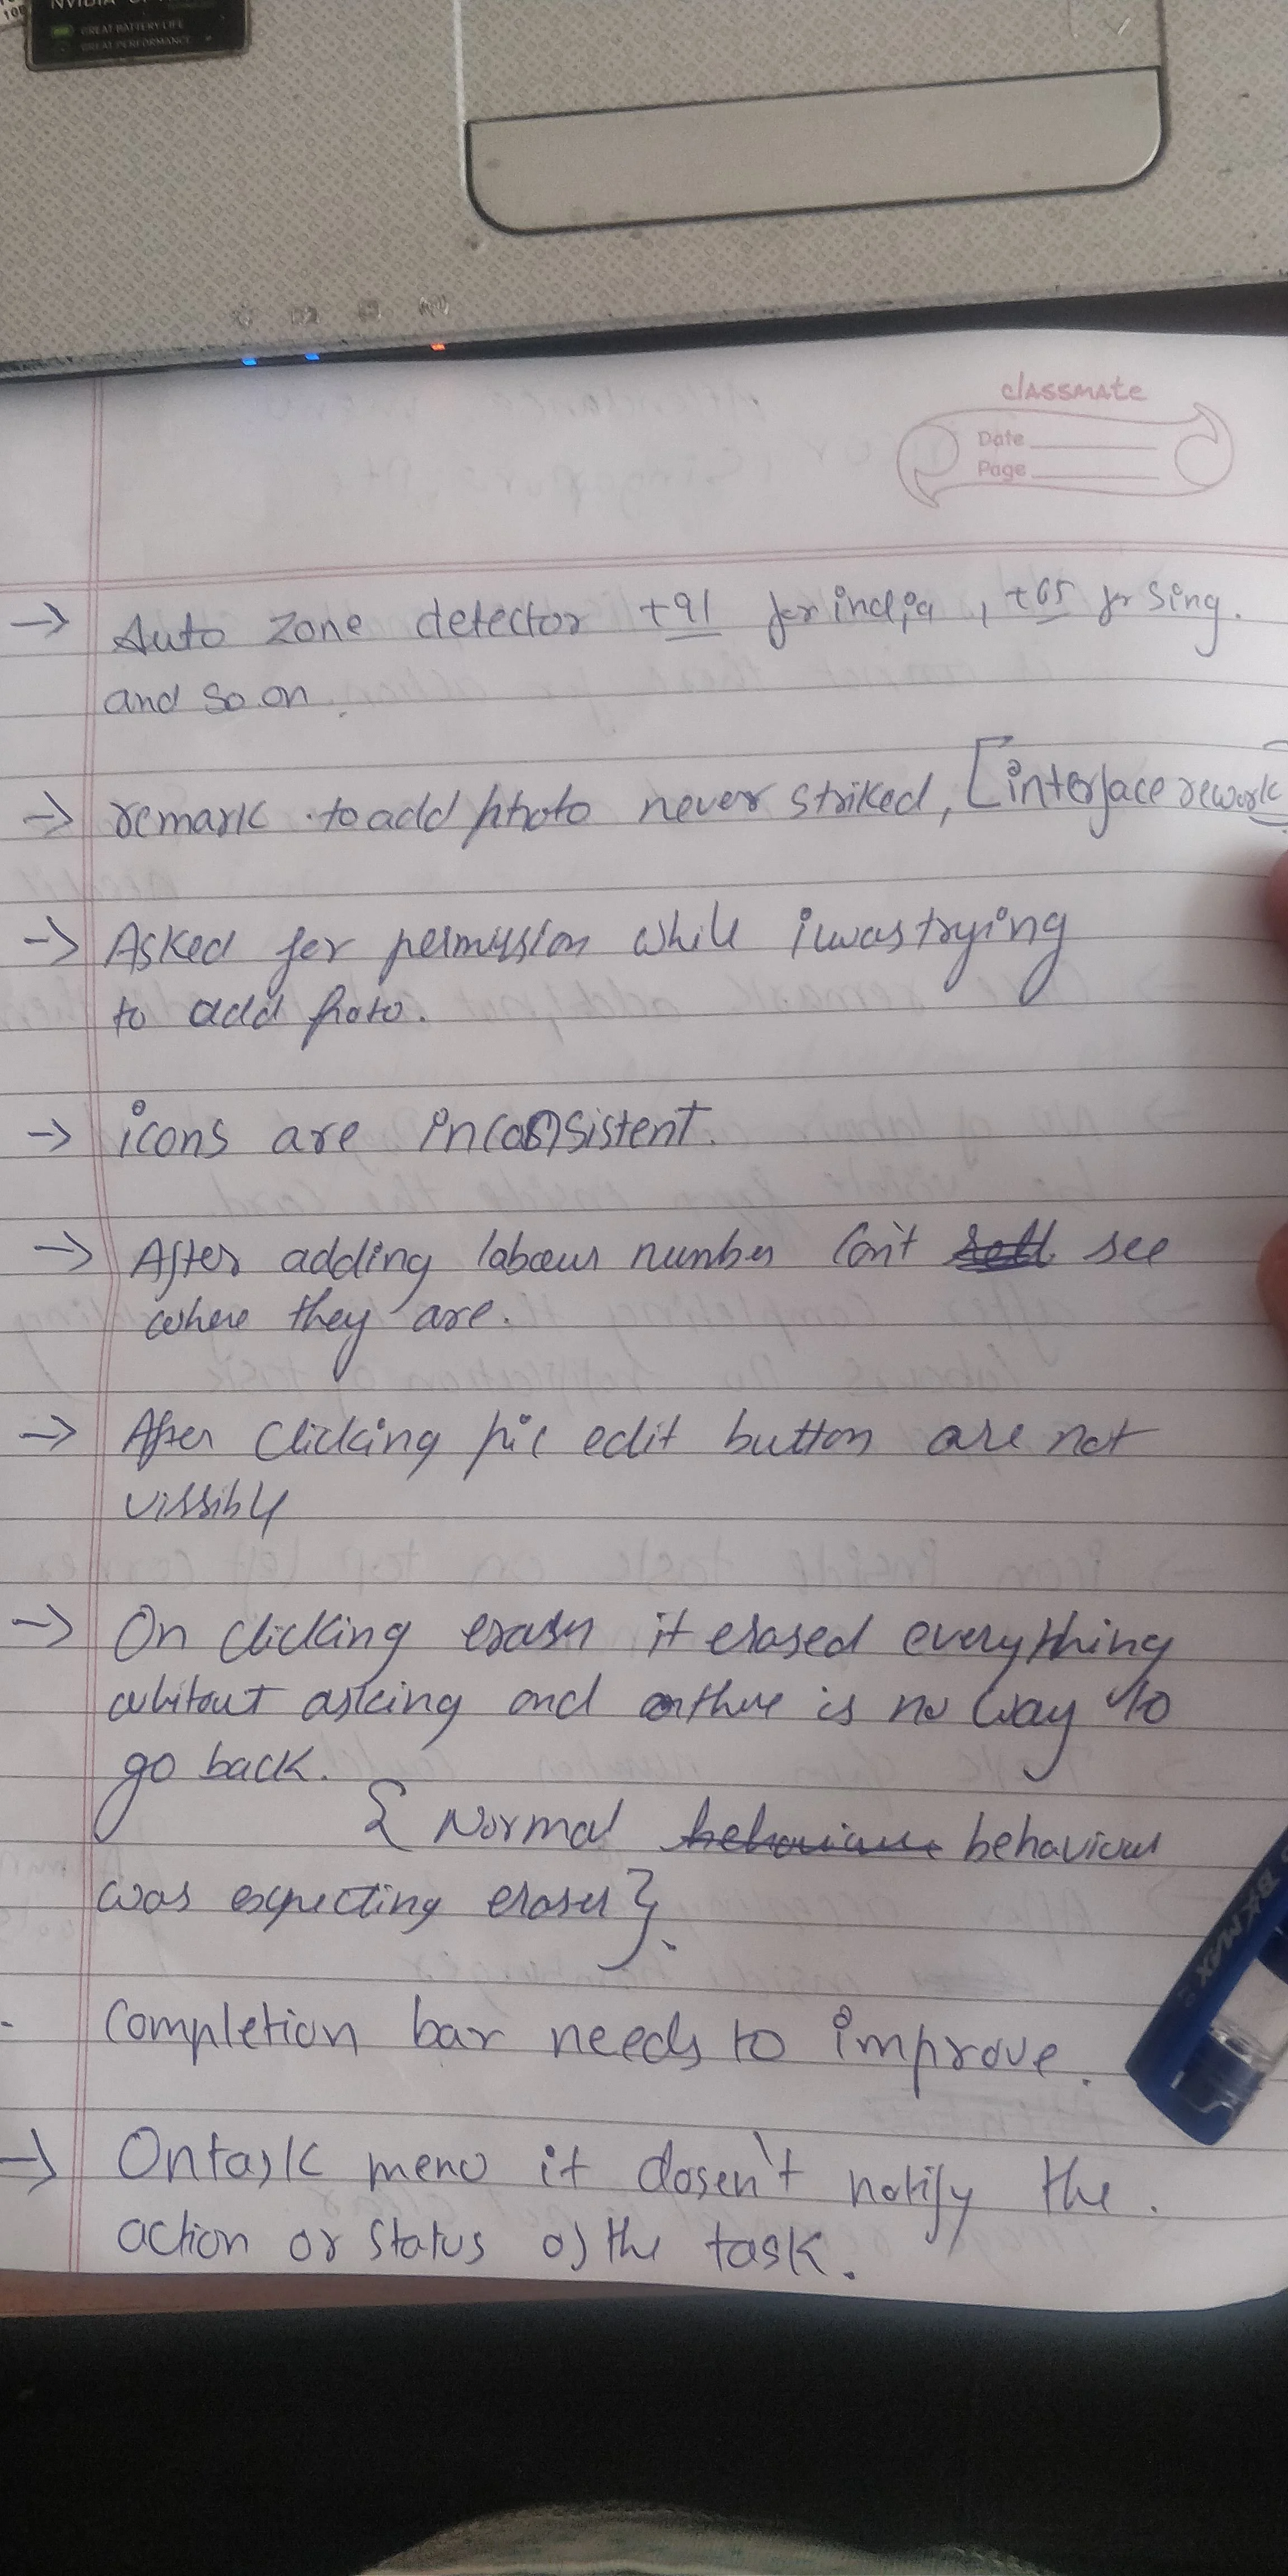 NVIDIA
GREAT BATTERY LIFE
GREAT PERFORMANCE
classmate
Date
Page
→ Auto zone detector +91 for india, +65 for Sing.
and so on.
→ remark to add photo never striked, [interface rework]
→ Asked for permission while i was trying
to add photo.
→ icons are inconsistent.
→ After adding labour number Can't see
where they are.
→ After Clicking pic edit button are not
vissible
→ On clicking eraser it erased everything
without asking and there is no way to
go back.
{ Normal behaviour behaviour
was expecting eraser }.
- Completion bar needs to improve.
→ On task menu it dosen't notify the.
action or status of the task.